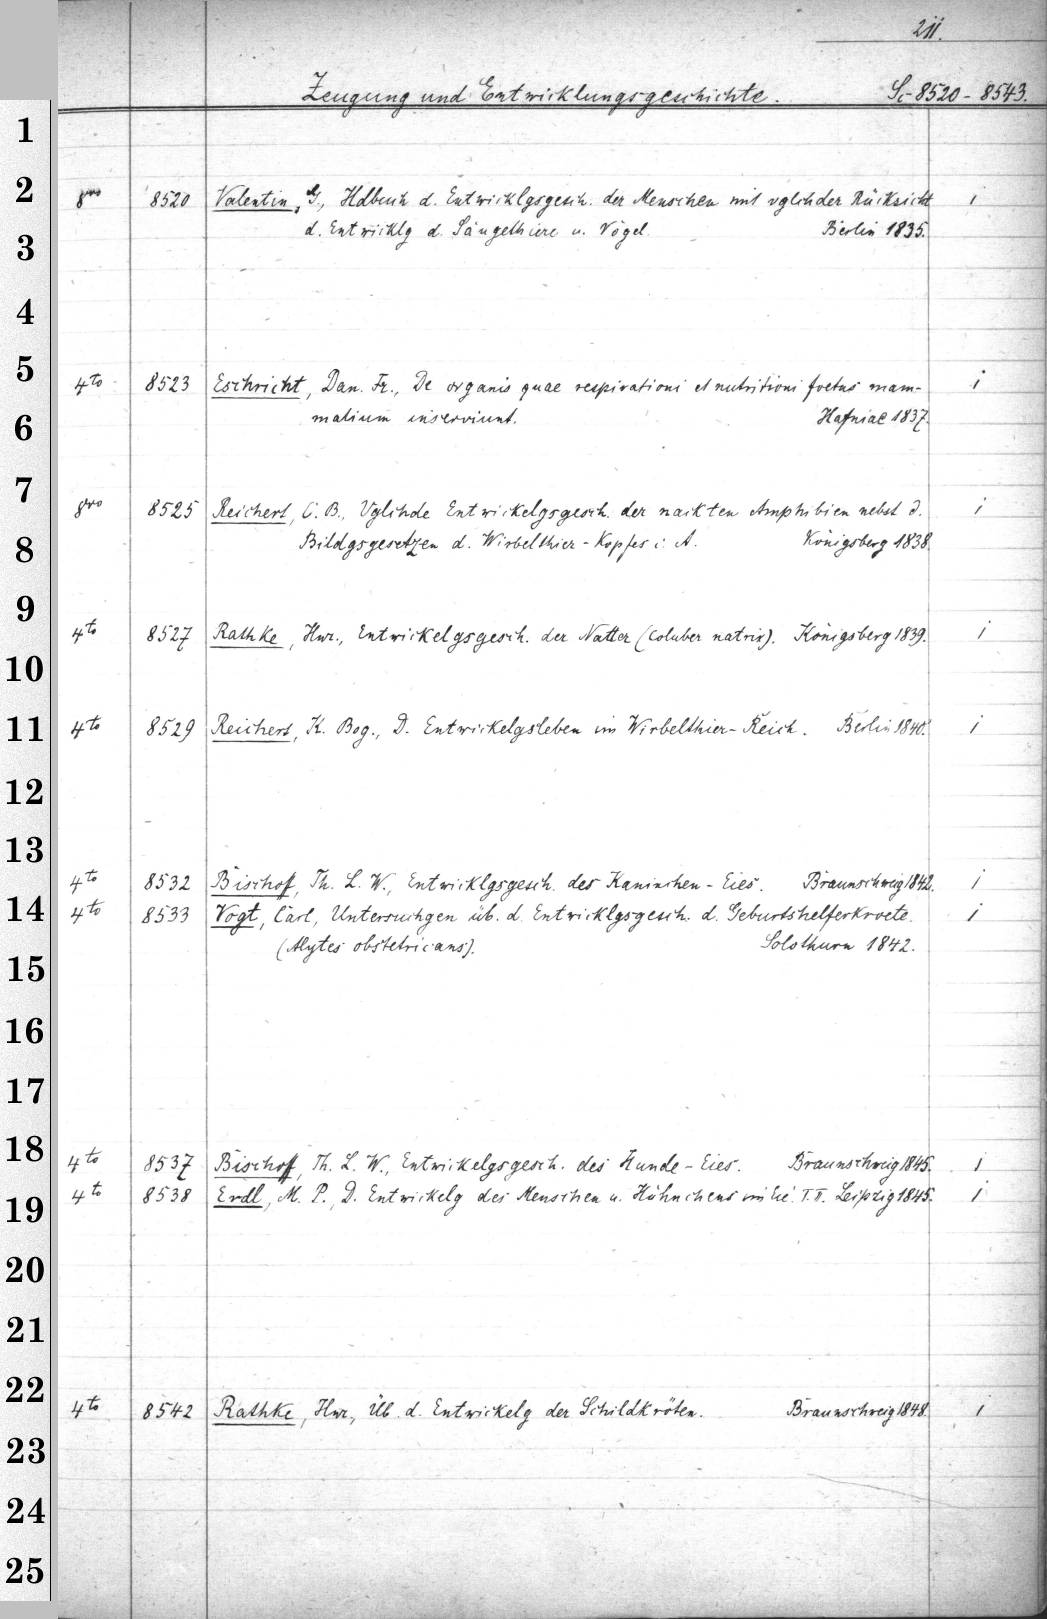 211.
Zeugung und Entwicklungsgeschichte. Sc-8520-8543.
1
2 8vo 8520 Valentin, G., Hdbuch d. Entwicklgsgesch. der Menschen mit vglchder Rücksicht 1
3 d. Entwicklg d. Säugethiere u. Vögel. Berlin 1835.
4
5 4to 8523 Eschricht, Dan. Fr., De organis quae respirationi et nutritioni foetus mam- 1
6 malium inserviunt. Hafniae 1837.
7 8vo 8525 Reichert, C. B., Vglchde Entwickelgsgesch. der nackten Amphibien nebst d. 1
8 Bildgsgesetzen d. Wirbelthier-Kopfes i. A. Königsberg 1838.
9 4to 8527 Rathke, Hnr., Entwickelgsgesch. der Natter (coluber natrix). Königsberg 1839. 1
10
11 4to 8529 Reichert, K. Bog., D. Entwickelgsleben im Wirbelthier-Reich. Berlin 1840. 1
12
13
4to 8532 Bischoff, Th. L. W., Entwicklgsgesch. des Kaninchen-Eies. Braunschweig 1842. 1
14 4to 8533 Vogt, Carl, Untersuchgen üb. d. Entwicklgsgesch. d. Geburtshelferkroete 1
(Alytes obstetricans). Solothurn 1842.
15
16
17
18 4to 8537 Bischoff, Th. L. W., Entwickelgsgesch. des Hunde-Eies. Braunschweig 1845. 1
19 4to 8538 Erdl, M. P., D. Entwickelg des Menschen u. Hühnchens im Eie. T. II. Leipzig 1845. 1
20
21
22 4to 8542 Rathke, Hnr., Üb. d. Entwickelg der Schildkröten. Braunschweig 1848. 1
23
24
25